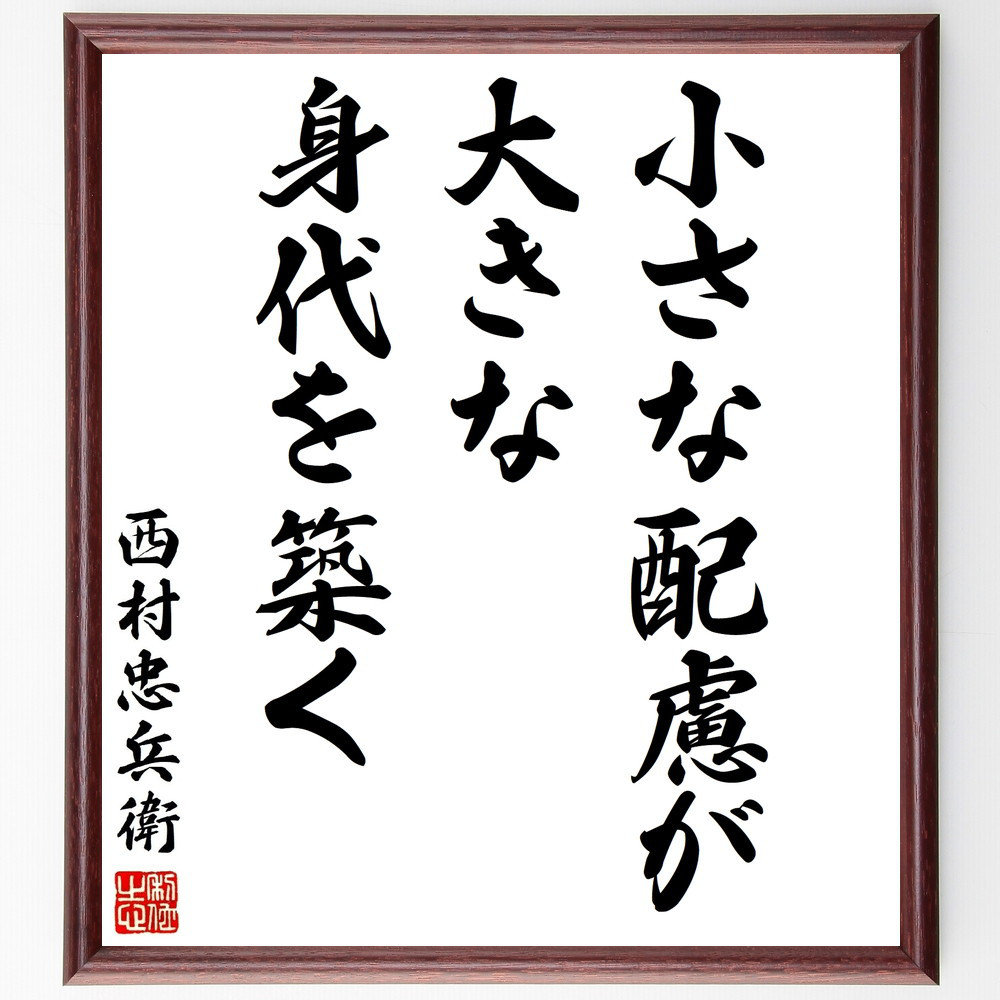 小さな配慮が
大きな
身代を築く
西村忠兵衛